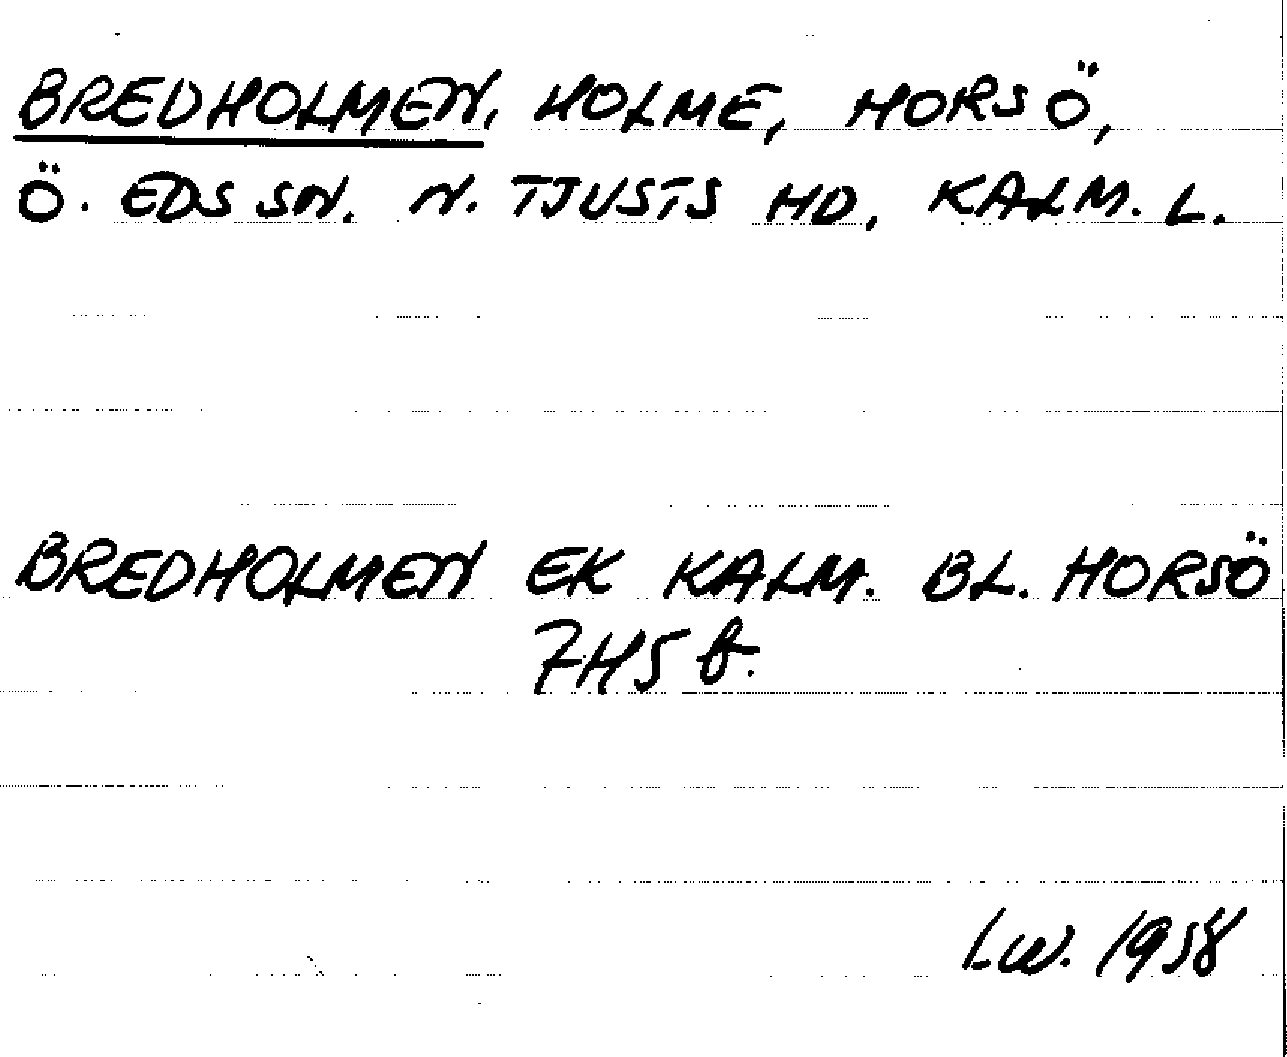 BREDHOLMEN, HOLME, HORSÖ,
Ö. EDS SN. N. TJUSTS HD, KALM. L.
BREDHOLMEN EK KALM. BL. HORSÖ
7H5 b.
I.W. 1958